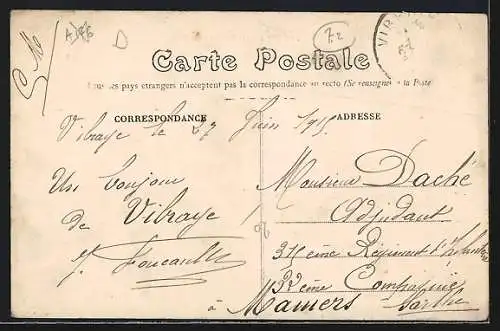 72
D
VIBR
Carte Postale
Tous les pays etrangers n'acceptent pas la correspondance au recto (Se renseigner à la Poste
CORRESPONDANCE
ADRESSE
Vibraye le 27 Juin 1915
Un bonjour
de Vibraye
J. Foucault
Monsieur Daché
Adjudant
315ème Régiment d'Infanterie
32ème Compagnie
à Mamers
Sarthe